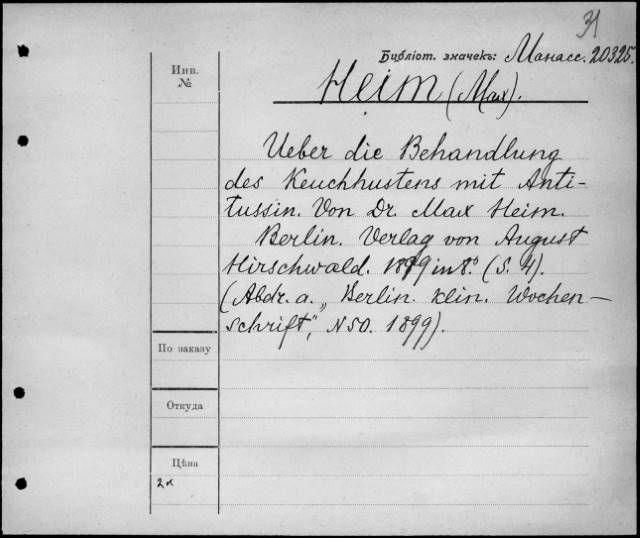 31
Библіот. значекъ: Манасс. 20325.
Инв.
№
Heim (Max).
Ueber die Behandlung
des Keuchhustens mit Anti-
tussin. Von Dr. Max Heim.
Berlin. Verlag von August
Hirschwald. 1899 in 8.° (S. 4).
(Abdr. a. „Berlin. klin. Wochen-
schrift“, N 50. 1899).
По заказу
Откуда
Цѣна